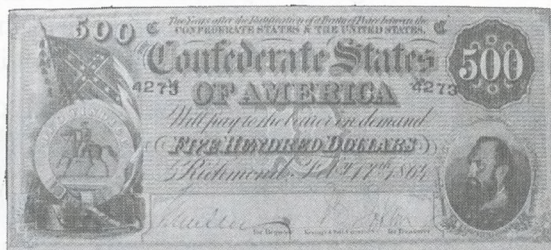 500 C Two Years after the Ratification of a Treaty of Peace between the C
CONFEDERATE STATES & THE UNITED STATES.
Confederate States 500
4273 4273
OF AMERICA
Will pay to the bearer on demand
FIVE HUNDRED DOLLARS
Richmond Feby 17th 1864
for Register for Treasurer